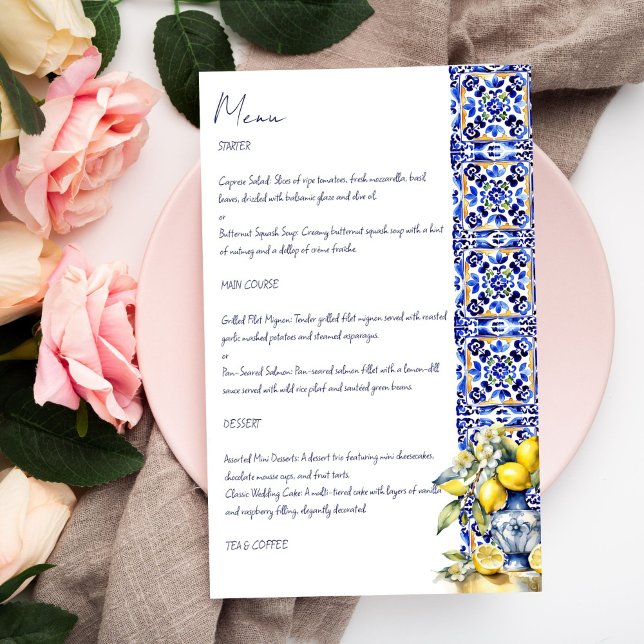 Menu
STARTER
Caprese Salad: Slices of ripe tomatoes, fresh mozzarella, basil
leaves, drizzled with balsamic glaze and olive oil.
or
Butternut Squash Soup: Creamy butternut squash soup with a hint
of nutmeg and a dollop of crème fraîche.
MAIN COURSE
Grilled Filet Mignon: Tender grilled filet mignon served with roasted
garlic mashed potatoes and steamed asparagus.
or
Pan-Seared Salmon: Pan-seared salmon fillet with a lemon-dill
sauce served with wild rice pilaf and sautéed green beans.
DESSERT
Assorted Mini Desserts: A dessert trio featuring mini cheesecakes,
chocolate mousse cups, and fruit tarts.
Classic Wedding Cake: A multi-tiered cake with layers of vanilla
and raspberry filling, elegantly decorated
TEA & COFFEE